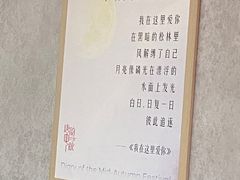 我在这里爱你
在黑暗的松林里
风解缚了自己
月亮像磷光在漂浮的
水面上发光
白日，日复一日
彼此追逐
——《我在这里爱你》
Diary of the Mid-Autumn Festival